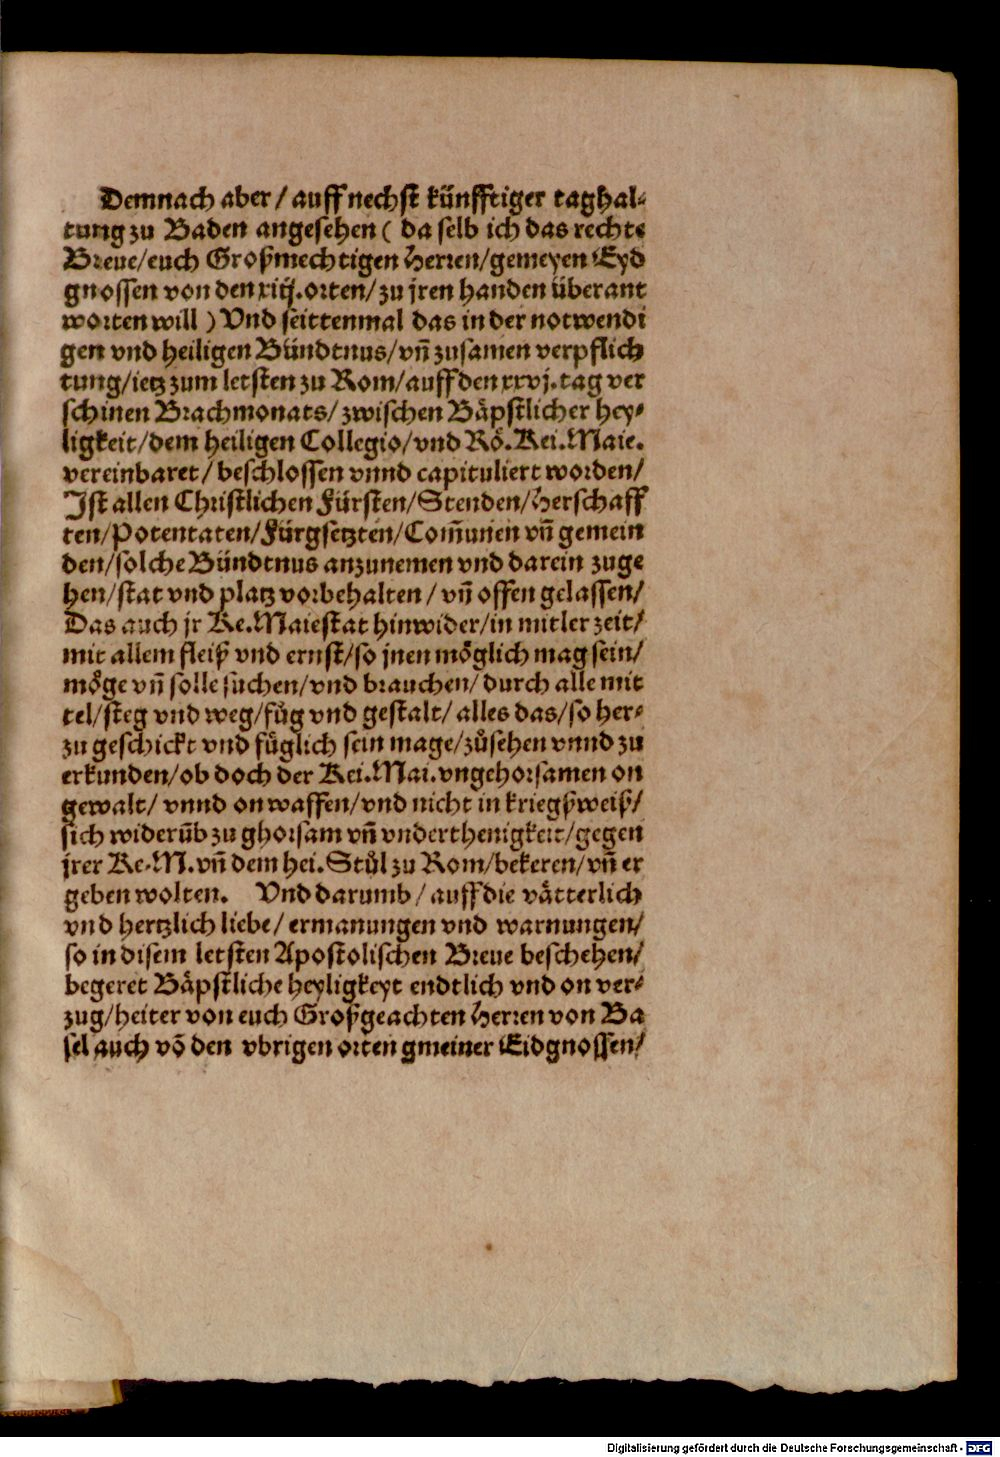 Demnach aber / auff nechst künfftiger taghal-
tung zu Baden angesehen ( da selb ich das rechte
Breue/euch Großmechtigen Herren/gemeyen Eyd
gnossen von den xiij.orten/zu jren handen überant
worten will ) Vnd seittenmal das in der notwendi
gen vnd heiligen Bündtnus/vñ zusamen verpflich
tung/ietz zum letsten zu Rom/auff den xxvj.tag ver
schinen Brachmonats/zwischen Bäpstlicher hey-
ligkeit/dem heiligen Collegio/vnd Rö.Kei.Maie.
vereinbaret/beschlossen vnnd capituliert worden/
Ist allen Christlichen Fürsten/Stenden/Herschaff
ten/Potentaten/Fürgsetzten/Com̃unen vñ gemein
den/solche Bündtnus anzunemen vnd darein zuge
hen/stat vnd platz vorbehalten / vñ offen gelassen/
Das auch jr Ke.Maiestat hinwider/in mitler zeit/
mit allem fleiß vnd ernst/so jnen möglich mag sein/
möge vñ solle suchen/vnd brauchen/durch alle mit
tel/steg vnd weg/fůg vnd gestalt/alles das/so her-
zu geschickt vnd fůglich sein mage/zůsehen vnnd zu
erkunden/ob doch der Kei.Mai.vngehorsamen on
gewalt/ vnnd on waffen/vnd nicht in kriegßweiß/
sich widerüb zu ghorsam vñ vnderthenigkeit/gegen
jrer Ke.M.vñ dem hei.Stůl zu Rom/bekeren/vñ er
geben wolten. Vnd darumb / auff die vätterlich
vnd hertzlich liebe/ ermanungen vnd warnungen/
so in disem letsten Apostolischen Breue beschehen/
begeret Bäpstliche heyligkeyt endtlich vnd on ver-
zug/heiter von euch Großgeachten Herren von Ba
sel auch võ den vbrigen orten gmeiner Eidgnossen/
Digitalisierung gefördert durch die Deutsche Forschungsgemeinschaft - DFG